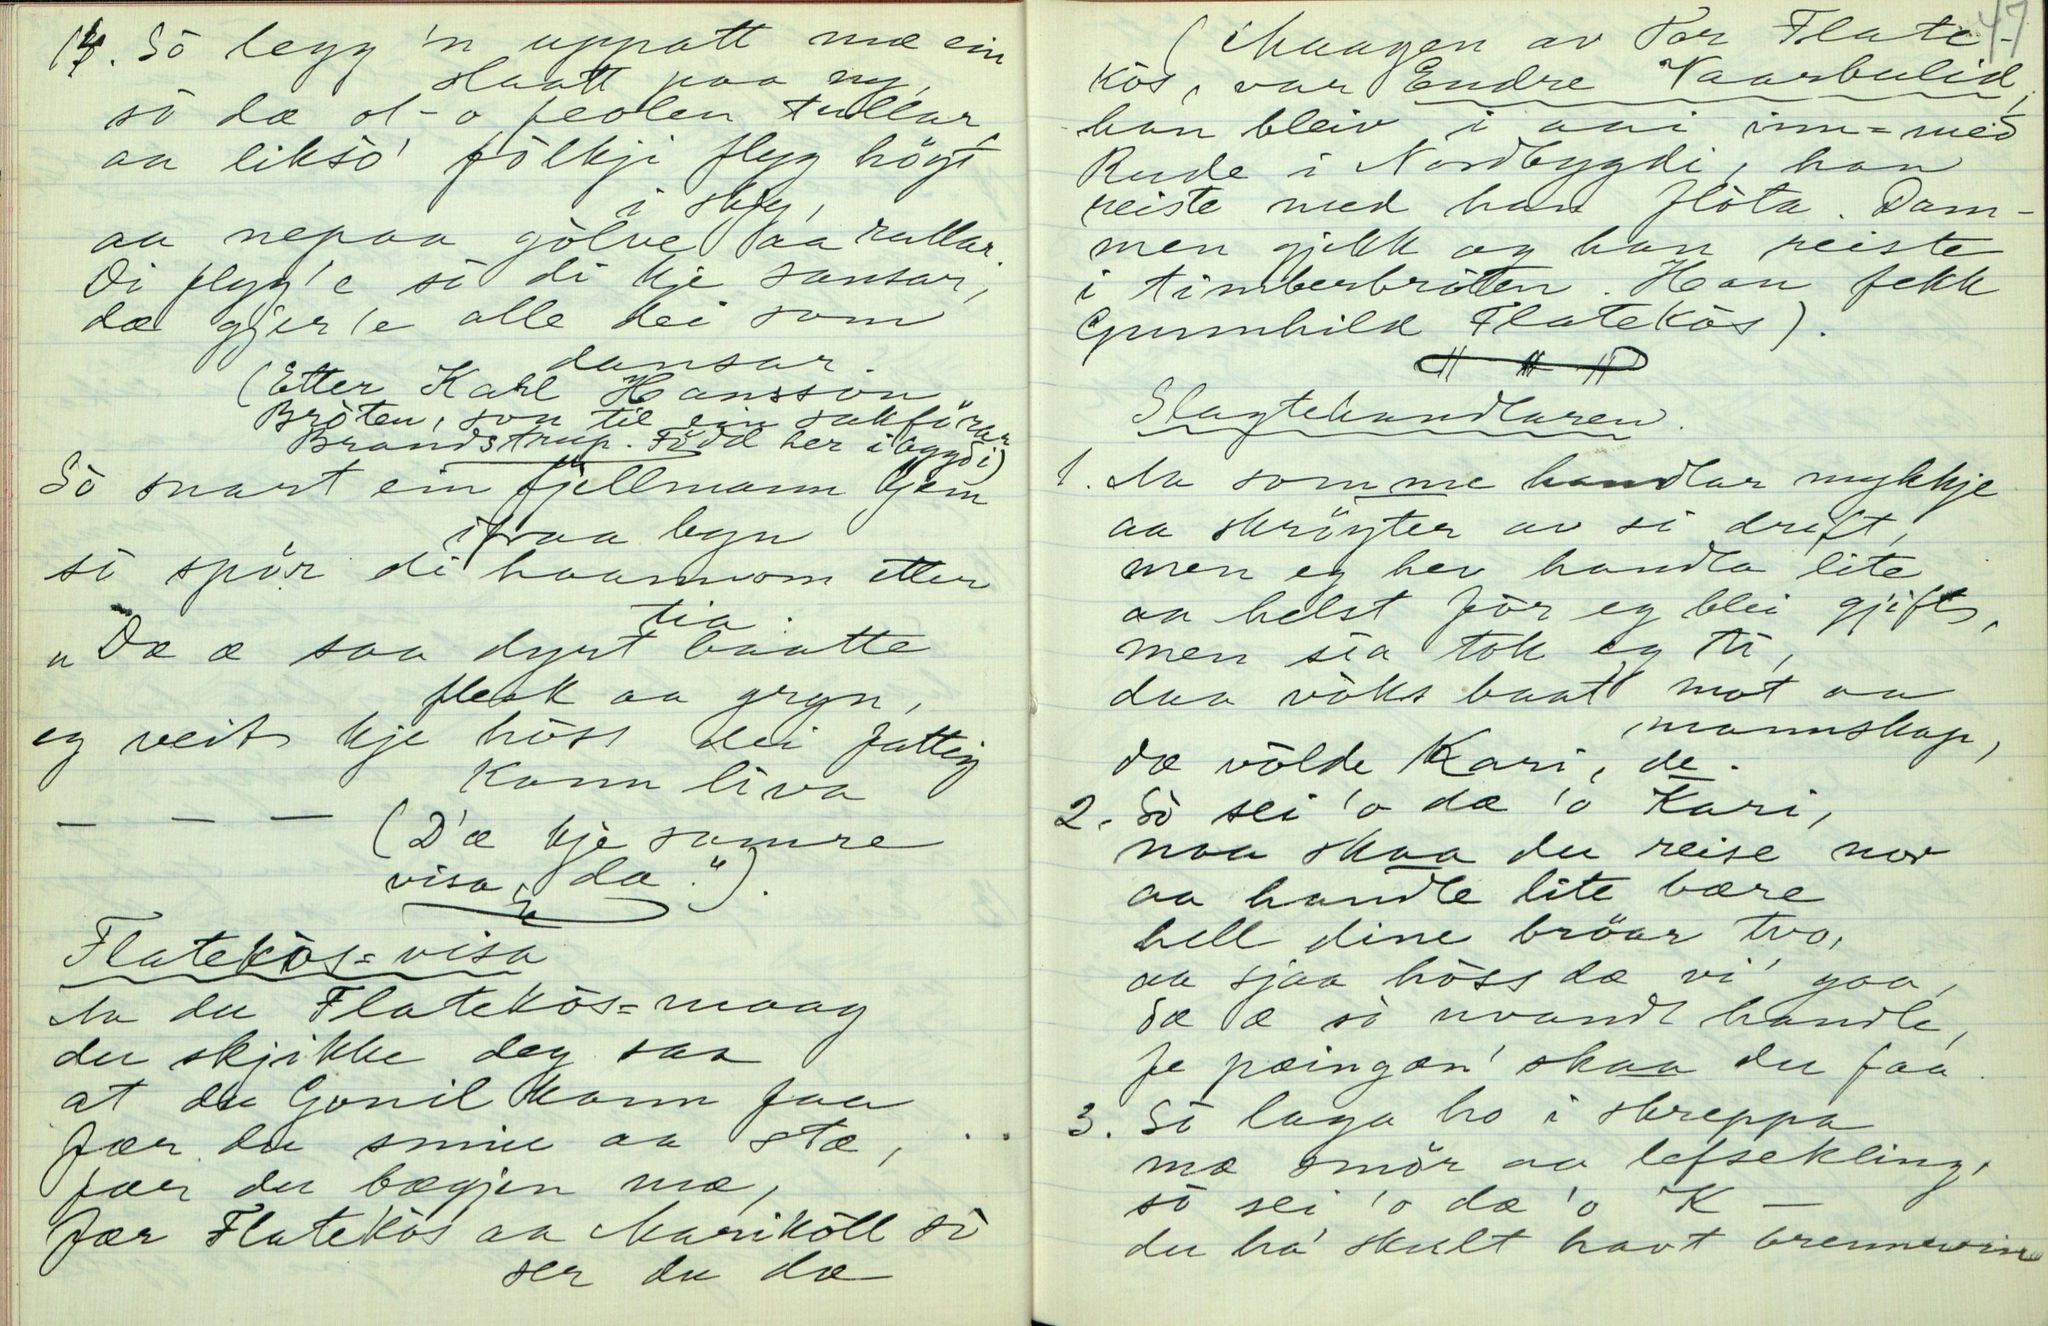 14. Sò legg 'n uppatt mæ ein
slaatt paa ny,
sò dæ ol-o feolen tullar,
aa liksò fòlkji flyg högt
i sky,
aa nepaa gòlve aa rullar.
Di flyg'e sò di kje sansar,
dæ gjer'e alle dei som
dansar.
(Etter Karl Hansson
Bròten, son til ein sakförar
Brandstrup. Född her i bygdi)
Sò snart ein fjellmann kjem
ifraa byn
sò spör di haannom etter
tia.
"Dæ æ saa dyrt baatte
flesk aa gryn,
eg veit kje hòss dei fattig
kann liva
— — — (D'æ kje samre
visa, da.").
Flatekòs-visa
Aa du Flatekòs-maag
du skjikke deg saa
at du Gonil kann faa
fær du smiu aa stæ,
fær du bægjen mæ,
fær Flatekòs aa Marikòll sò
ser du dæ
47
(Maagen av Tor Flate-
kòs, var Endre Vaarbulid,
han bleiv i aai inn-med
Rude i Nordbygdi, han
reiste med han flòta. Dam-
men gjekk og han reiste
i timberbròten. Han fekk
Gunnhild Flatekòs).
Slagtehandlaren.
1. Aa somme handlar mykkje
aa skröyter av si drift,
men eg hev handla lite
aa helst för eg blei gjift,
men sia tok eg te,
daa vòks baat mot aa
mannskap,
dæ vòlde Kari, de.
2. Sò sei 'o dæ 'o Kari,
naa skaa du reise nor
aa handle lite bære
hell dine bröar tvo,
aa sjaa hòss dæ vi' gaa,
dæ æ sò uvandt handle,
fe pæingan' skaa du faa.
3. Sò laga ho i skreppa
mæ smör aa lefsekling,
sò sei 'o dæ 'o K —
du ha' skult havt brennevin